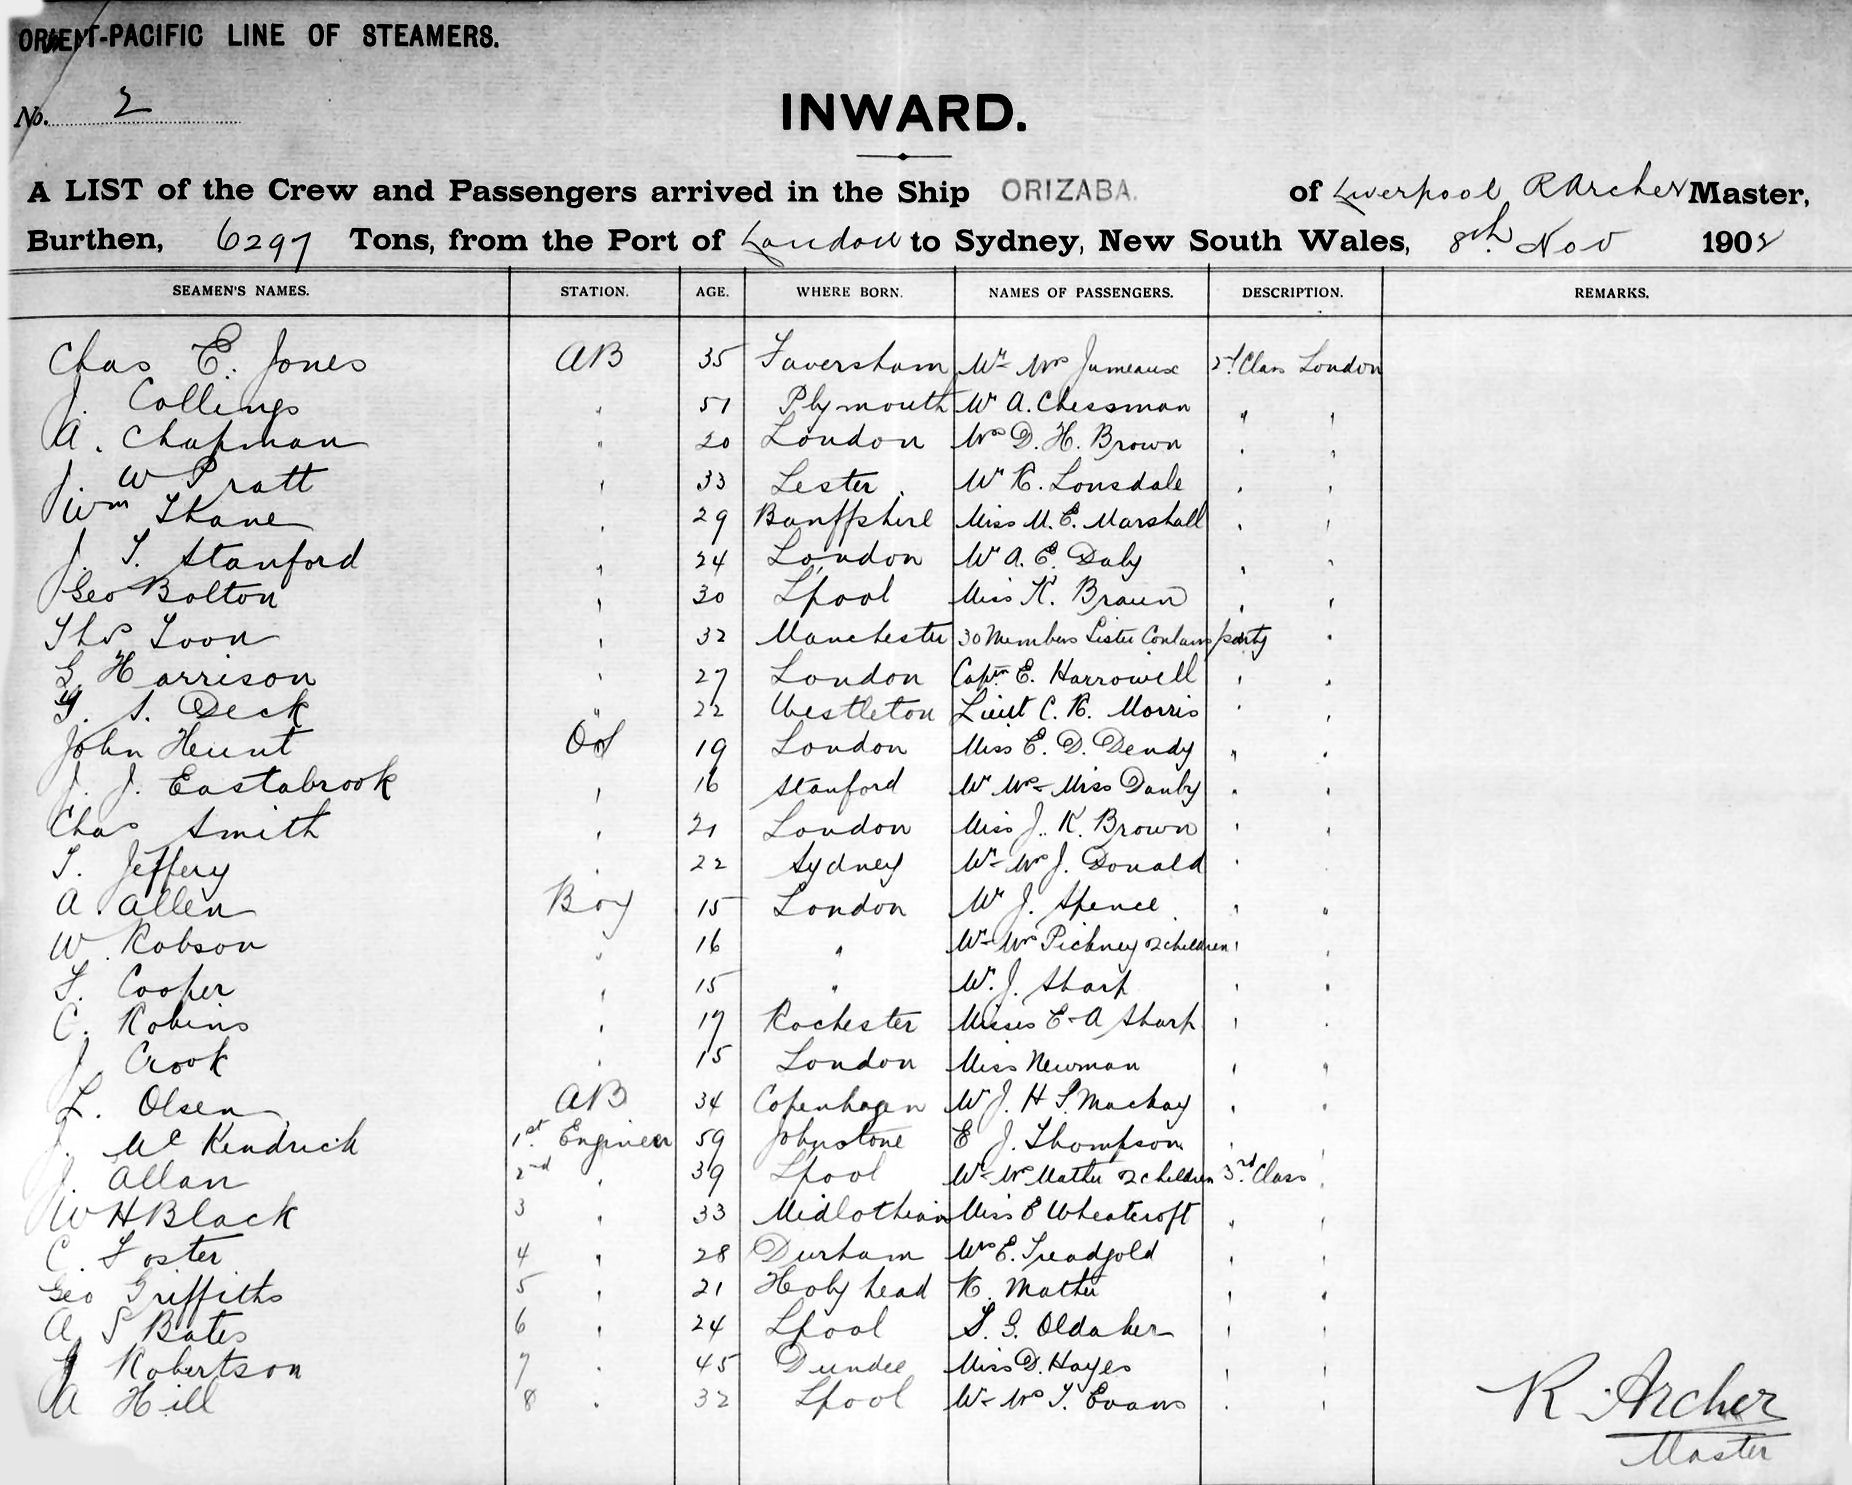 ORIENT-PACIFIC LINE OF STEAMERS.
No. 2
INWARD.
A LIST of the Crew and Passengers arrived in the Ship ORIZABA. of Liverpool R Archer Master,
Burthen, 6297 Tons, from the Port of London to Sydney, New South Wales, 8th Nov 1902
SEAMEN'S NAMES. STATION. AGE. WHERE BORN. NAMES OF PASSENGERS. DESCRIPTION. REMARKS.
Chas E. Jones AB 35 Faversham Mr Mrs Jumeaux 2d Class London
J. Collings " 51 Plymouth Mr A. Chessman " "
A. Chapman " 20 London Mrs D. H. Brown " "
J. W Pratt " 33 Lester Mr R. Lonsdale " "
Wm Skane " 29 Banffshire Miss M. E. Marshall " "
J. T. Stanford " 24 London Mr A. E. Daly " "
Geo Bolton " 30 Lpool Miss K. Braun " "
Thos Toon " 32 Manchester 30 Members party "
G. Harrison " 27 London Captn E. Harrowell " "
S. Deck " 22 Westleton Lieut C. R. Morris " "
John Hunt OS 19 London Miss E. D. Dendy " "
J. J. Eastabrook " 16 Stanford Mr Mrs - Miss Danby " "
Chas Smith " 21 London Miss J. K. Brown " "
T. Jeffery " 22 Sydney Mr - Mrs J. Donald " "
A. Allen Boy 15 London Mr J. Spence " "
W. Robson " 16 " Mr - Mrs Pickney 2 children " "
F. Cooper " 15 " Mr. J. Sharp " "
C. Robins " 17 Rochester Misses E - A Sharp " "
J. Crook " 15 London Miss Newman " "
L. Olsen AB 34 Copenhagen Mr J. H S. Mackay " "
J. McKendrick 1st. Engineer 59 Johnstone E J. Thompson " "
J. Allan 2nd " 39 Lpool Mr - Mrs Mather 2 children 3rd Class "
W H Black 3 " 33 Midlothian Miss E Wheatcroft " "
C. Foster 4 " 28 Durham Mrs E. Treadgold " "
Geo Griffiths 5 " 21 Holyhead R. Mather " "
A S Bates 6 " 24 Lpool S. G. Oldaker " "
J Robertson 7 " 45 Dundee Miss D. Hayes " "
A Hill 8 " 32 Lpool Mr - Mrs T. Evans " "
R. Archer
Master